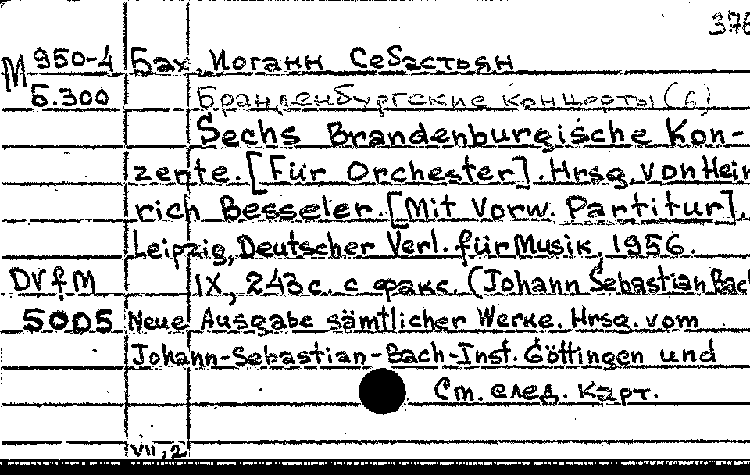 376
М 950-4 Бах, Иоганн Себастьян
Б.300 Бранденбургские концерты (6)
Sechs Brandenburgische Kon-
zerte. [Für Orchester]. Hrsg. von Hein
rich Besseler. [Mit Vorw. Partitur].
Leipzig, Deutscher Verl. für Musik, 1956.
DVfM IX, 243 с. с факс. (Johann Sebastian Bach
5005 Neue Ausgabe sämtlicher Werke. Hrsg. vom
Johann-Sebastian-Bach-Inst. Göttingen und
См. след. карт.
VII, 2